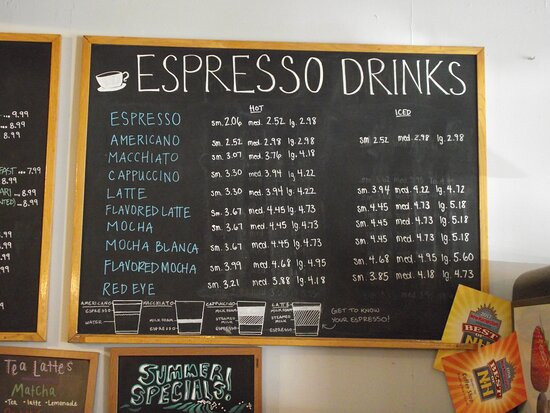 ESPRESSO DRINKS
HOT ICED
ESPRESSO sm. 2.06 med. 2.52 lg. 2.98
AMERICANO sm. 2.52 med. 2.98 lg. 2.98 sm 2.52 med. 2.98 lg. 2.98
MACCHIATO sm. 3.07 med. 3.76 lg. 4.18
CAPPUCCINO sm. 3.30 med. 3.94 lg. 4.22
LATTE sm. 3.30 med. 3.94 lg. 4.22 sm. 3.94 med. 4.22 lg. 4.72
FLAVORED LATTE sm. 3.67 med. 4.45 lg. 4.73 sm. 4.45 med. 4.73 lg. 5.18
MOCHA sm. 3.67 med. 4.45 lg. 4.73 sm. 4.45 med. 4.73 lg. 5.18
MOCHA BLANCA sm. 3.67 med. 4.45 lg. 4.73 sm. 4.45 med. 4.73 lg. 5.18
FLAVORED MOCHA sm. 3.99 med. 4.68 lg. 4.95 sm. 4.68 med. 4.95 lg. 5.60
RED EYE sm. 3.21 med. 3.88 lg. 4.18 sm. 3.85 med. 4.18 lg. 4.73
AMERICANO MACCHIATO CAPPUCCINO LATTE
ESPRESSO
WATER
MILK FOAM
ESPRESSO
MILK FOAM
STEAMED MILK
ESPRESSO
MILK FOAM
STEAMED MILK
ESPRESSO
GET TO KNOW
YOUR ESPRESSO!
9.99
8.99
8.99
7.99
8.99
8.99
Tea Lattes
Matcha
•Tea •latte •Lemonade
SUMMER
SPECIALS!
BEST
OF
NH
BEST
OF
NH